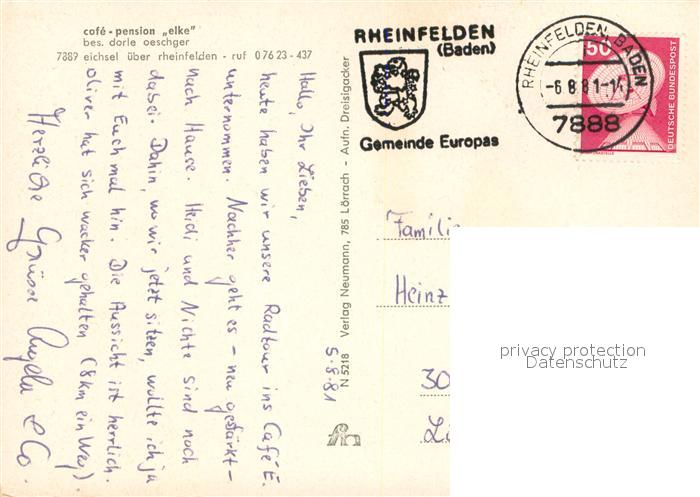 café - pension „elke"
bes. dorle oeschger
7889 eichsel über rheinfelden - ruf 0 76 23 - 437
Hallo, Ihr Lieben,
heute haben wir unsere Radtour ins Café E.
unternommen. Nachher geht es – neu gestärkt –
nach Hause. Heidi und Nichte sind noch
dabei. Dahin, wo wir jetzt sitzen, wollte ich ja
mit Euch mal hin. Die Aussicht ist herrlich.
Oliver hat sich wacker gehalten (8 km ein Weg).
Herzliche Grüsse Angela & Co.
5.8.81
N 5218 Verlag Neumann, 785 Lörrach - Aufn. Dreislgacker
RHEINFELDEN
(Baden)
Gemeinde Europas
RHEINFELDEN, BADEN
-6.8.81-14
7888
50
DEUTSCHE BUNDESPOST
Familie
Heinz
30
privacy protection
Datenschutz